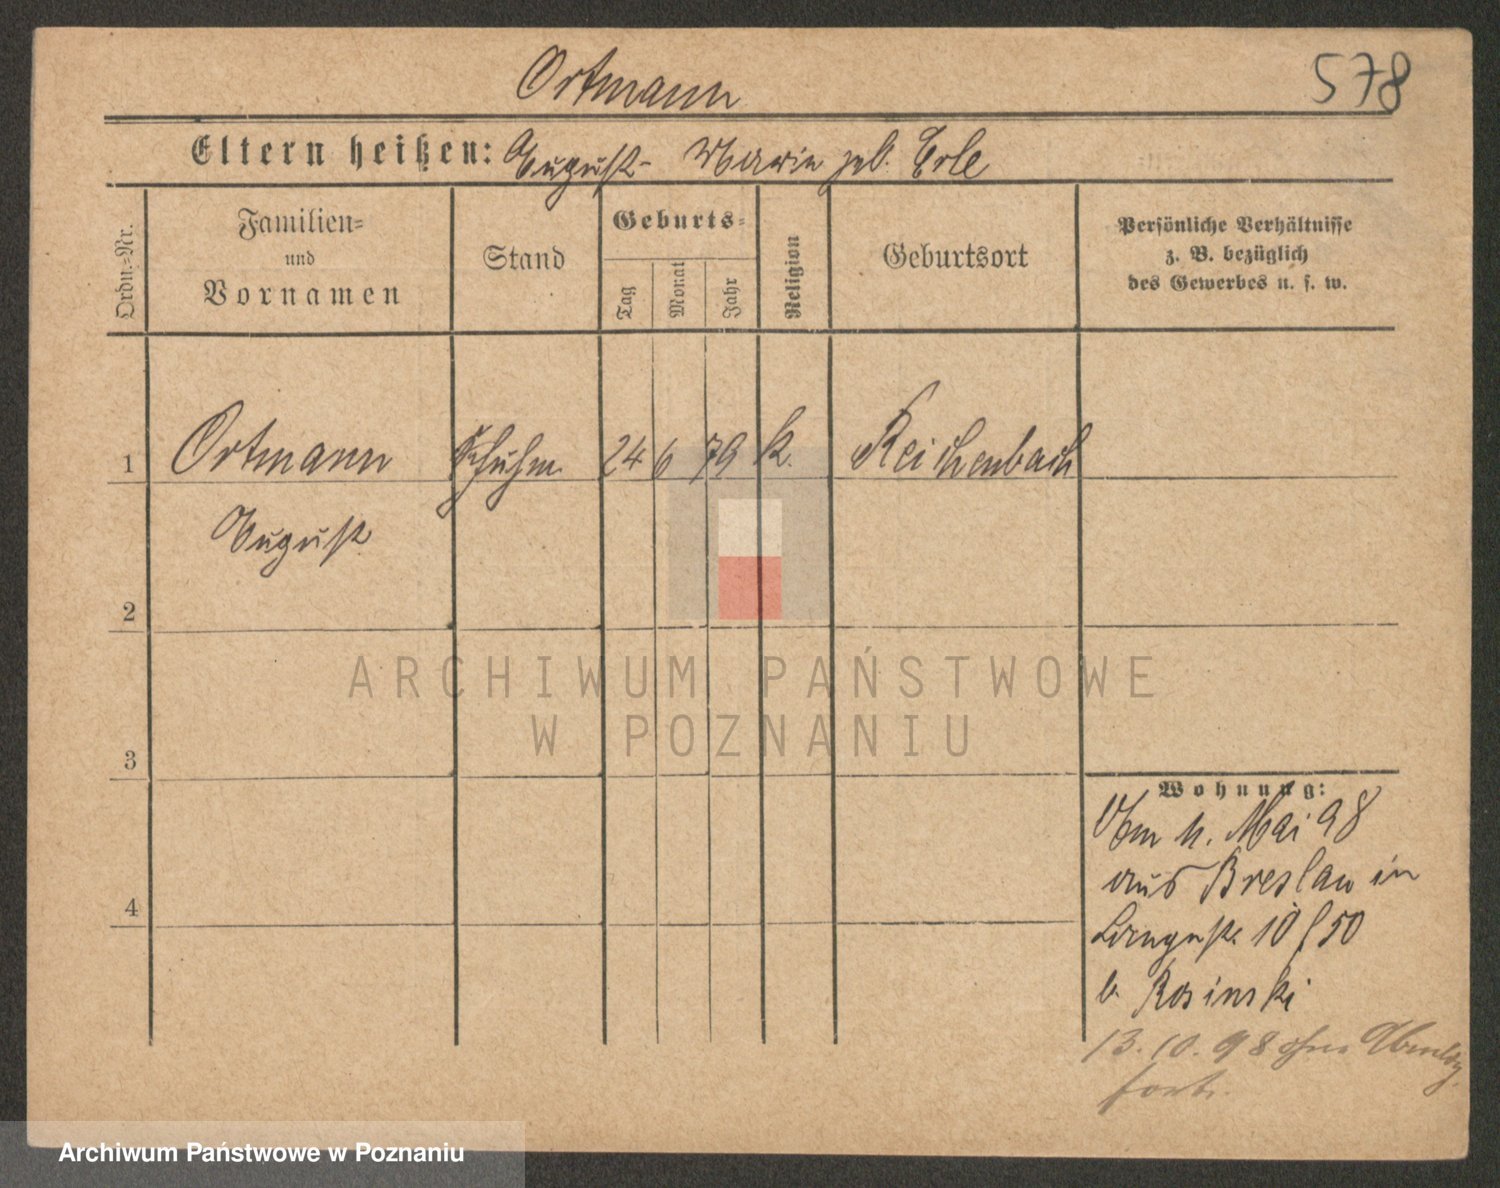 Ortmann
578
Eltern heißen: August - Marie geb. Erle
Ordn.-Nr.
Familien-
und
Vornamen
Stand
Geburts-
Tag
Monat
Jahr
Religion
Geburtsort
Persönliche Verhältnisse
z. B. bezüglich
des Gewerbes u. s. w.
1 Ortmann Schuhm. 24 6 79 k. Reichenbach
August
2
3
4
Wohnung:
Vom 4. Mai 98
aus Breslau in
Langestr. 10 / 50
b. Rosinski
13. 10. 98 ohne Abmeldg.
fort.
ARCHIWUM PAŃSTWOWE
W POZNANIU
Archiwum Państwowe w Poznaniu